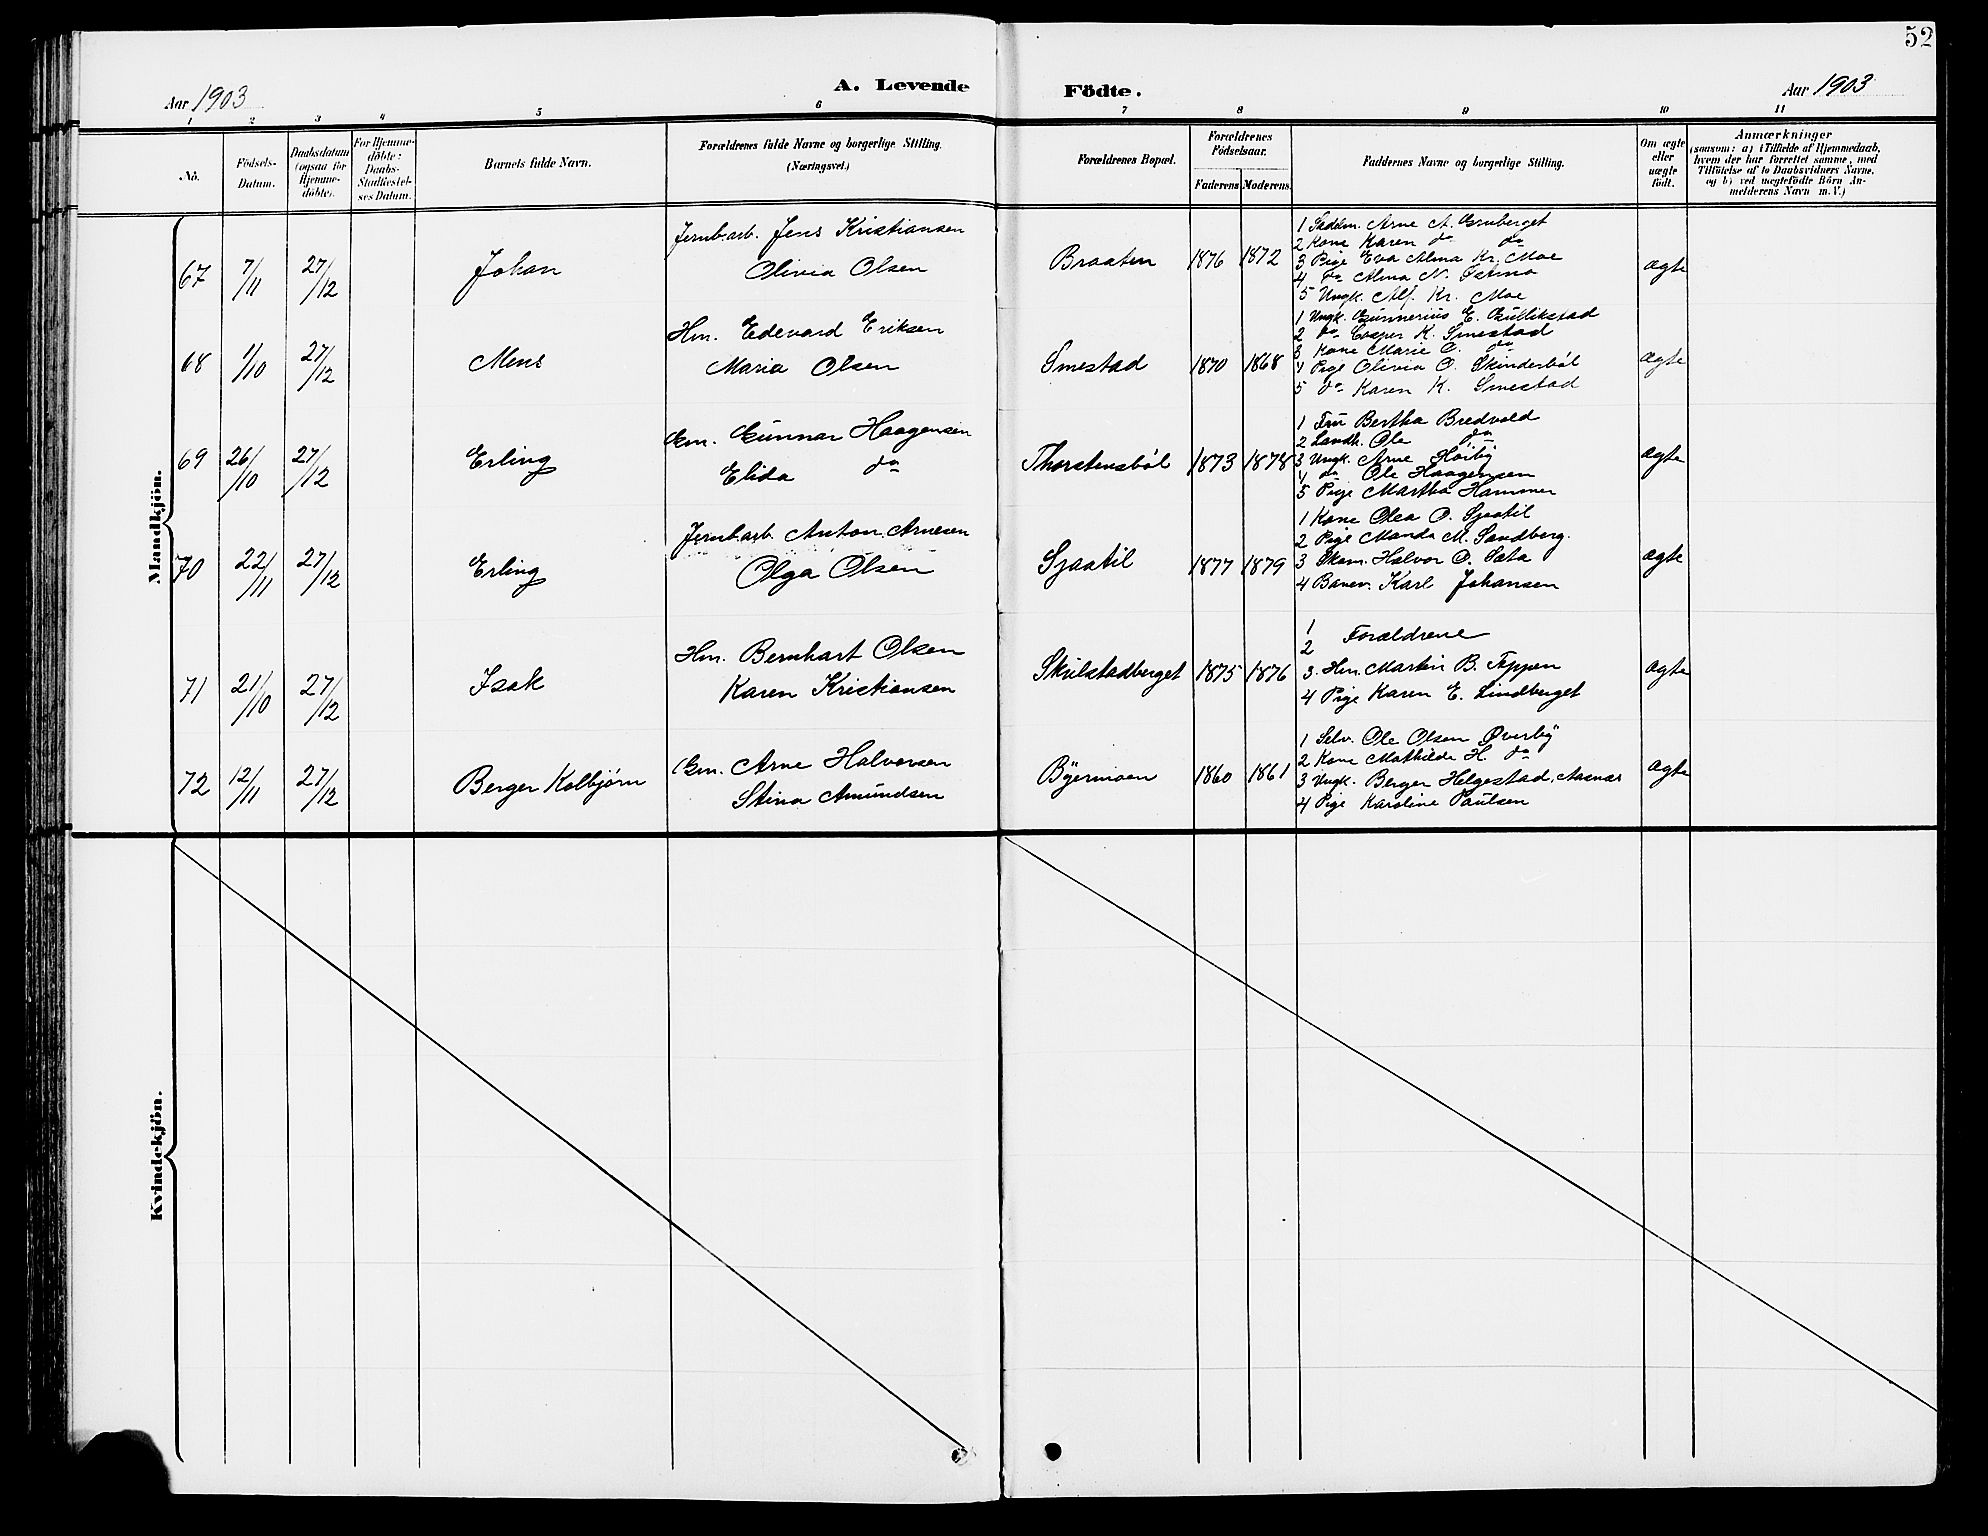 52
A. Levende Födte.
Aar 1903
Aar 1903
1 2 3 4 5 6 7 8 9 10 11
No.
Födsels-Datum.
Daabsdatum (ogsaa for Hjemme-döbte).
For Hjemme-döbte: Daabs-Stadfæstel-ses Datum.
Barnets fulde Navn.
Forældrenes fulde Navne og borgerlige Stilling. (Næringsvei.)
Forældrenes Bopæl.
Forældrenes Födselsaar.
Faderens Moderens
Faddernes Navne og borgerlige Stilling.
Om ægte eller uægte født.
Anmærkninger
(saasom: a) i Tilfælde af Hjemmedaab, hvem der har forrettet samme, med Tilföielse af to Daabsvidners Navne, og b) ved uægtefödte Börn An-melderens Navn m. V.)
Mandkjön.
67 7/11 27/12 Johan
Jernb.arb. Jens Kristiansen
Olivia Olsen
Braaten 1876 1872
1 Sadelm. Arne A.
2 Kone Karen do do
3 Pige Eva Alma Kr. Moe
4 do Alma N.
5 Ungk. Alf. Kr. Moe
ægte
68 1/10 27/12 Mens
Hm. Edevard Eriksen
Maria Olsen
Smestad 1870 1868
1 Ungk. Gunnerius E. Gullikstad
2 do Casper K. Smestad
3 Kone Marie O. do
4 Pige Olivia O. Skinderböl
5 do Karen K. Smestad
ægte
69 26/10 27/12 Erling
Gm. Gunnar Haagensen
Elida do
Thorstensböl 1873 1878
1 Fru Bertha Bredvold
2 Landh. Ole do
3 Ungk. Arne Höiby
4 do Ole Haagensen
5 Pige Martha Hammer
ægte
70 22/11 27/12 Erling
Jernb.arb. Anton Arnesen
Olga Olsen
Sjaatil 1877 1879
1 Kone Olea O. Sjaatil
2 Pige Manda M. Sandberg.
3 Skom. Halvor O. Sæta
4 Banev. Karl Johansen
ægte
71 21/10 27/12 Isak
Hm. Bernhart Olsen
Karen Kristiansen
Skulstadberget 1875 1876
1
2 Forældrene
3. Hm. Martin B. Teppen
4 Pige Karen E. Lindberget
ægte
72 12/11 27/12 Berger Kolbjørn
Gm. Arne Halvorsen
Stina Amundsen
Byermoen 1860 1861
1 Selv. Ole Olsen Øverby
2 Kone Mathilde H. do
3 Ungk. Berger Helgestad, Aasnæs
4 Pige Karoline Paulsen
ægte
Kvindekjön.